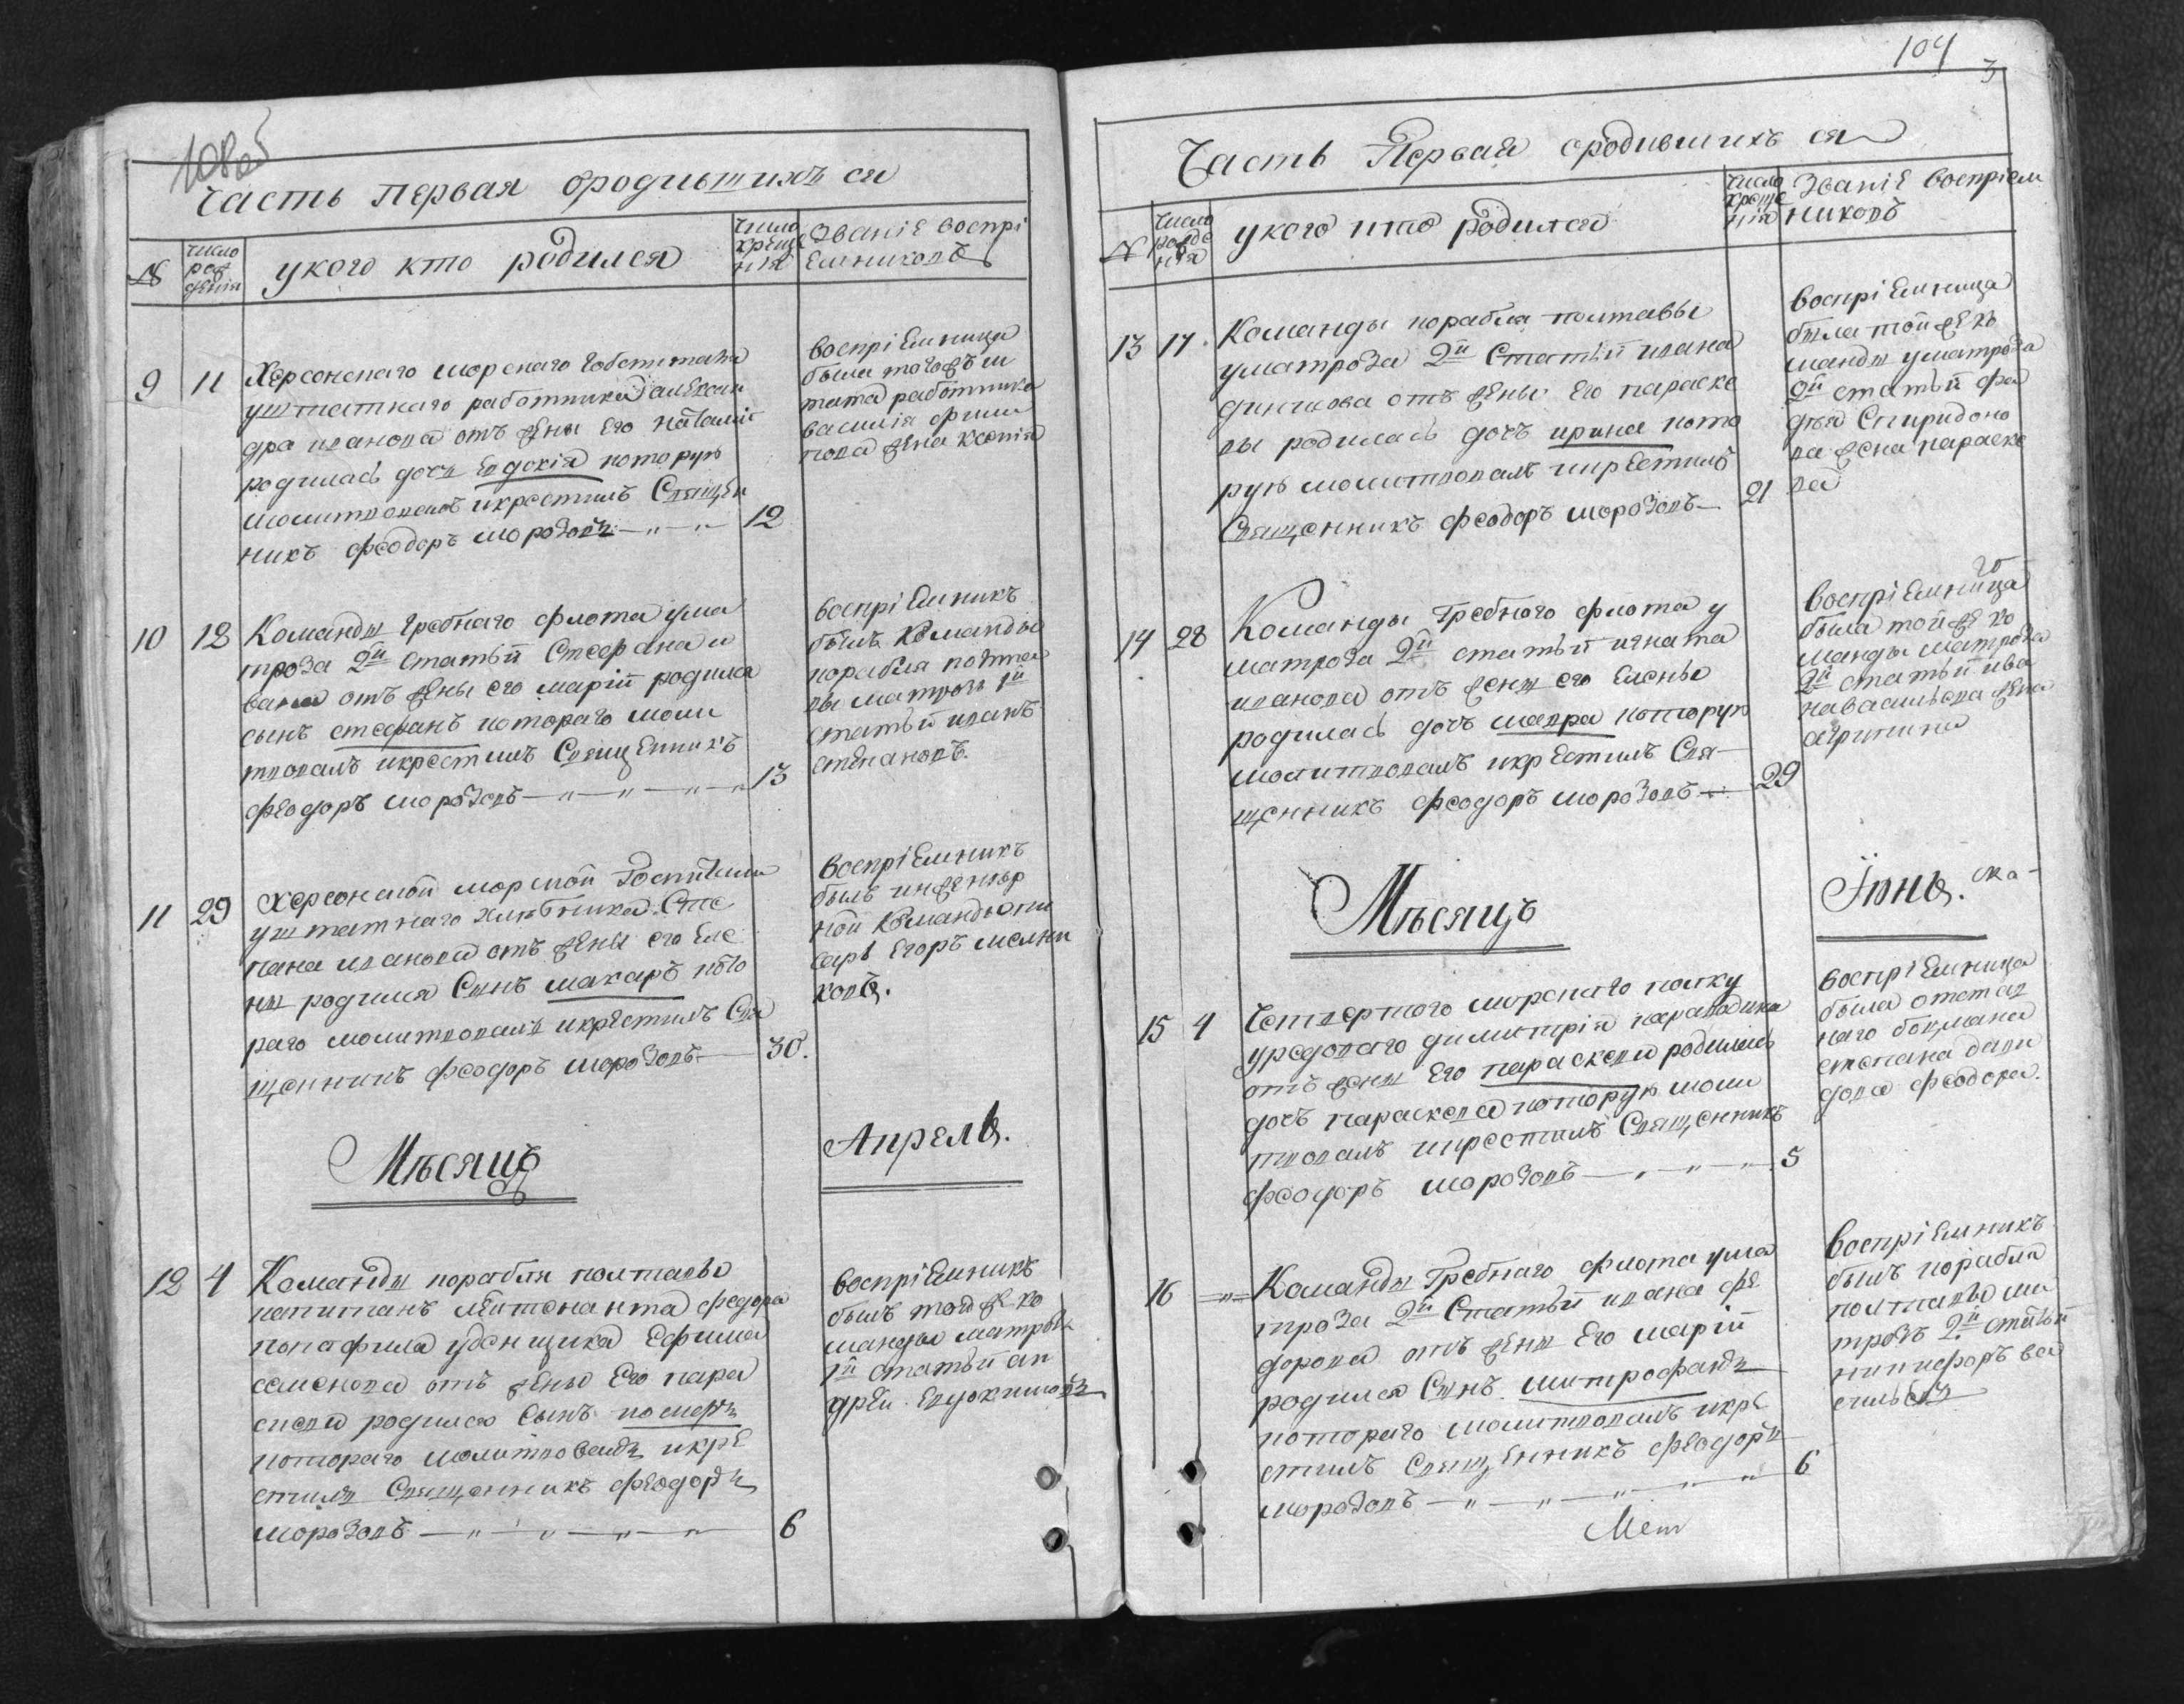 108об
Часть первая ородившихъ ся
№
число рождения
укого кто родился
число крещения
Званіе воспрі
емниковъ
9 11
Херсонскаго морскаго гобститата
уштатнаго работника алексан
дра иванова отъ жены его наталіи
родилась дочь евдокія которую
молитвовалъ икрестилъ Священ
никъ феодоръ морозовъ 12
воспріемница
была тогожъ ш
тата работника
василія фили
пова жена ксенія
10 12
Команды гребнаго флота ума
троза 2й статьи Стефана и
вана отъ жены его маріи родился
сынъ стефанъ котораго моли
твовалъ икрестилъ Священникъ
феодоръ морозовъ 13
воспріемникъ
былъ команды
корабля полта
вы матрозъ 1й
статьи иванъ
степановъ.
11 29
Херсонской морской Госпитали
уштатнаго хлебника Сте
пана иванова отъ жены его Еле
ны родился Сынъ макаръ кото
раго молитвовалъ икрестилъ Свя
щенникъ феодоръ морозовъ 30.
воспріемникъ
былъ инженер
ной команды пи
сарь Егоръ мелни
ковъ.
Месяцъ Апрель.
12 4
Команды корабля полтавы
капитанъ лейтенанта федора
папафила уденщика Ефима
семенова отъ жены Его пара
скеви родился сынъ
котораго молитвовалъ икре
стилъ Священникъ феодоръ
морозовъ 6
воспріемникъ
былъ тойж ко
манды матрозъ
1й статьи ан
дрей Евдокимовъ
104
3
Часть Первая ородившихъ ся
№
число рожде нія
укого кто родился
число креще нія
Званіе воспріем
никовъ
13 17
Команды корабля полтавы
уматроза 2й Статьи ивана
отъ жены его параске
вы родилась дочь ирина кото
рую молитвовалъ икрестилъ
Священникъ феодоръ морозовъ 21
воспріемница
была той же ко
манды уматроза
2й статьи фа
дея Спиридоно
ва жена параске
ва
14 28
Команды Гребного флота у
матроза 2й статьи игната
иванова отъ жены его Елены
родилась дочь мавра которую
молитвовалъ икрестилъ Свя-
щенникъ феодоръ морозовъ 29
воспріемница
была той же ко
манды матроза
2й статьи ива
на васильева жена
агрипина
Месяцъ Іюнь.
15 4
Четвертого морскаго полку
урядоваго димитрія
отъ жены Его параскеви родилась
дочь параскева которую моли
твовалъ икрестилъ Священникъ
феодоръ морозовъ 5
воспріемница
была отстав
наго боцмана
степана дави
дова феодора.
16 —„—
Команды Гребнаго флота ума
троза 2й Статьи ивана фе
дорова отъ жены Его маріи
родился Сынъ митрофанъ
котораго молитвовалъ икре
стилъ Священникъ феодоръ
морозовъ 6
воспріемникъ
былъ корабля
полтавы ма
трозъ 2й статьи
никифоръ ва
сильевъ
Мет